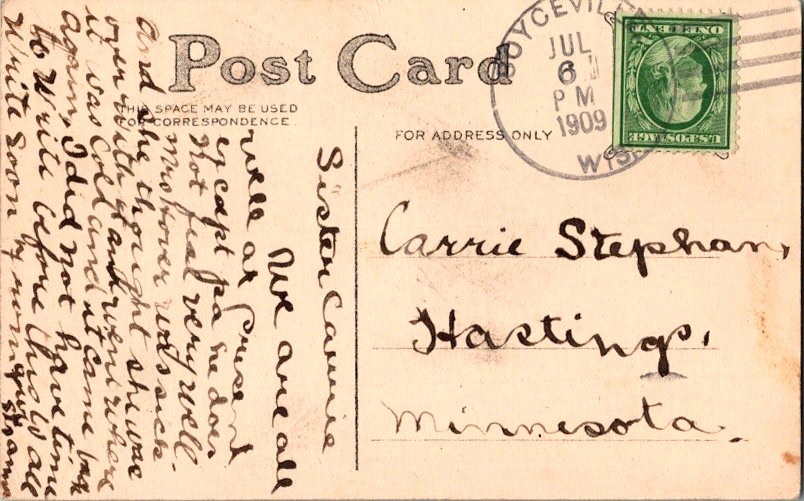 Post Card
THIS SPACE MAY BE USED
FOR CORRESPONDENCE.
FOR ADDRESS ONLY
BOYCEVILLE
JUL
6
PM
1909
WIS.
U.S. POSTAGE
ONE CENT
Carrie Stephan,
Hastings,
Minnesota.
Sister Carrie
We are all
well at present
except pa he does
not feel very well.
Mrs Hover was sick
and she thought she was
over with it and went where
it was cold and it came back
again. I did not have time
to write before this. W all
write soon